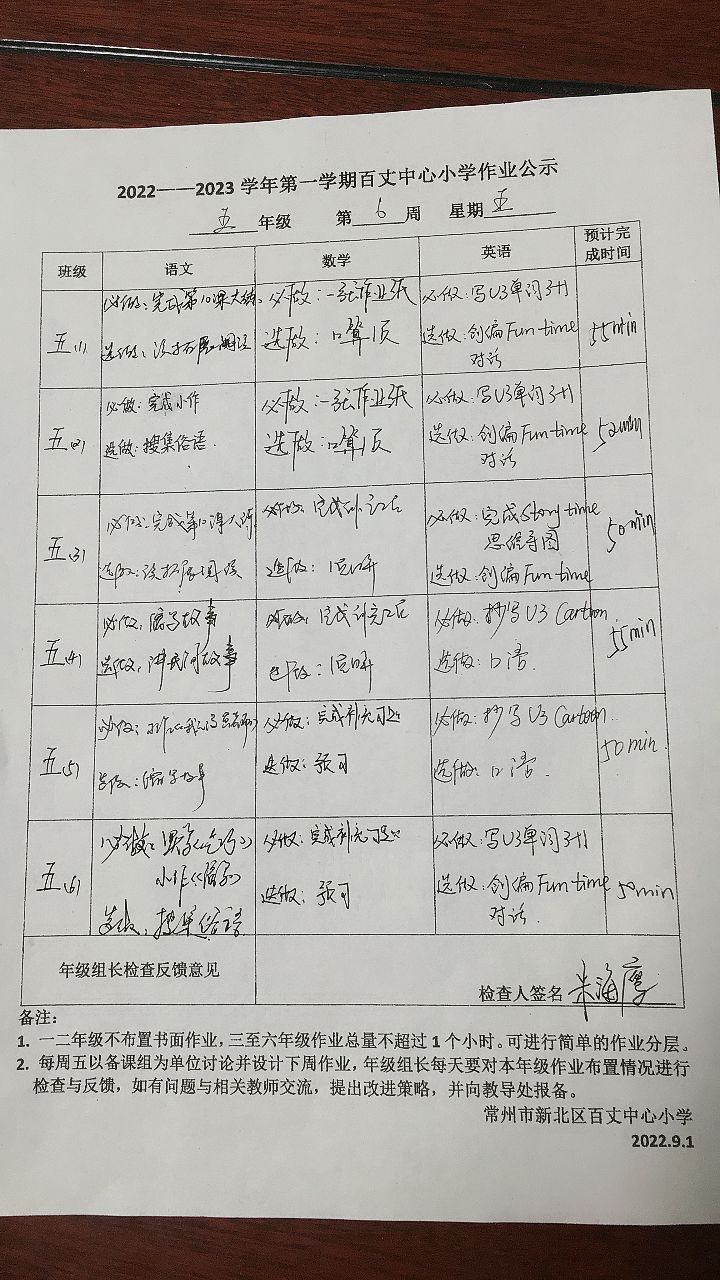 2022——2023 学年第一学期百丈中心小学作业公示
五 年级 第 6 周 星期 五
班级 语文 数学 英语 预计完成时间
五(1) 必做：完成第10课大练. 必做：一张作业纸 必做：写U3单词3+1 55min
选做：选做：口算1页 选做：创编Fun time
对话
五(2) 必做：完成小作 必做：一张作业纸 必做：写U3单词3+1 52min
选做：搜集俗语. 选做：口算1页 选做：创编Fun time
对话
五(3) 必做：完成第10课大练 必做：完成补充 必做：完成Story time 50min
思维导图
选做： 选做： 选做：创编Fun time
五(4) 必做：缩写故事 必做：完成补充 必做：抄写U3 Cartoon. 55min
选做：讲民间故事 选做： 选做：口语.
五(5) 必做： 必做：完成补充习题 必做：抄写U3 Cartoon. 50min.
选做：缩写故事 选做：预习 选做：口语.
五(6) 必做： 必做：完成补充习题 必做：写U3单词3+1 50min
小作
选做：搜集俗语 选做：预习 选做：创编Fun time
对话.
年级组长检查反馈意见 检查人签名
备注：
1. 一二年级不布置书面作业，三至六年级作业总量不超过 1 个小时。可进行简单的作业分层。
2. 每周五以备课组为单位讨论并设计下周作业，年级组长每天要对本年级作业布置情况进行
检查与反馈，如有问题与相关教师交流，提出改进策略，并向教导处报备。
常州市新北区百丈中心小学
2022.9.1